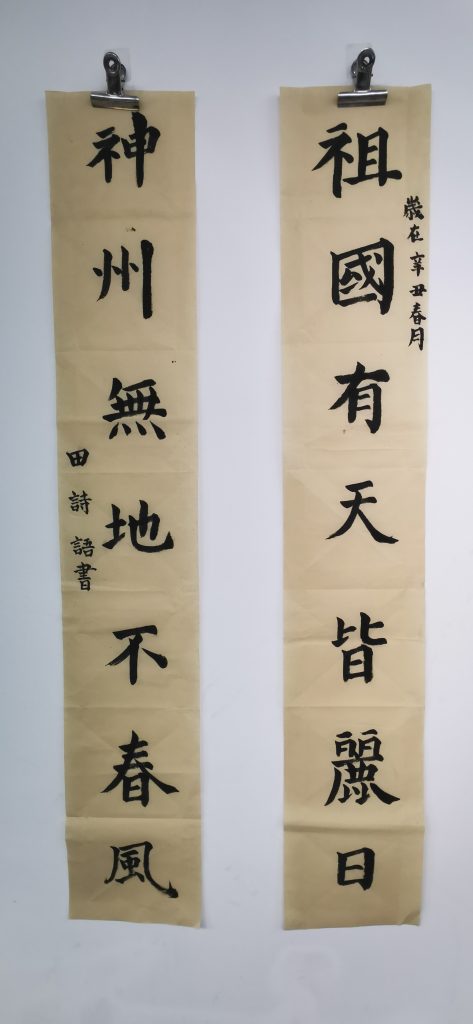 祖國有天皆麗日
歲在辛丑春月
神州無地不春風
田詩語書